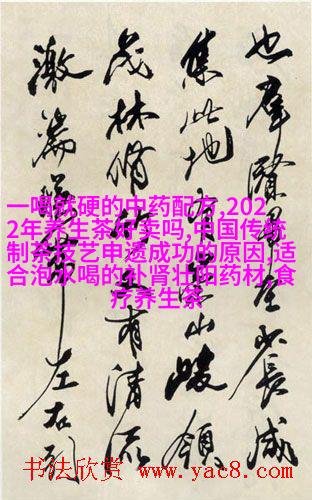 也群賢畢至少長咸
集此地有崇山峻領
茂林脩竹又有清流
激湍帶左右引
一喝就硬的中药配方,202
2年养生茶好卖吗,中国传统
制茶技艺申遗成功的原因,适
合泡水喝的补肾壮阳药材,食
疗养生茶
书法欣赏 www.yac8.com